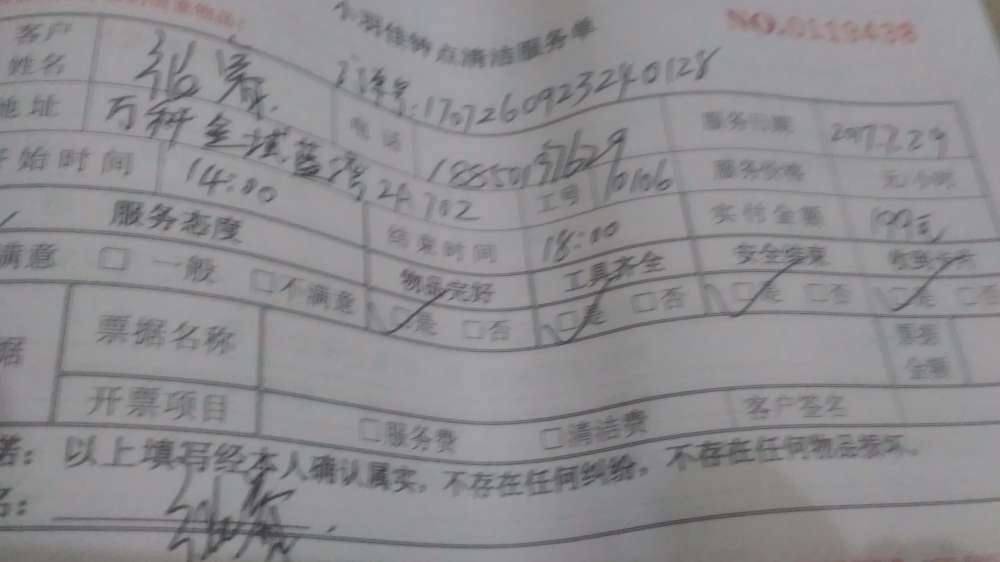 小羽佳钟点清洁服务单
NO.0113438
客户姓名 张 订单号:1707260923240128
地址 万科金域蓝湾 2A 702 电话 18850197629 服务日期 2017.7.29
开始时间 14:00 工号 10106 服务价格 元/小时
服务态度 结束时间 18:00 实付金额 199元
满意 □ 一般 □不满意 物品完好 工具齐全 安全结束
□是 □否 □是 □否 □是 □否 □是 □否
据 票据名称 票据金额
开票项目 □服务费 □清洁费 客户签名
诺:以上填写经本人确认属实,不存在任何纠纷,不存在任何物品损坏。
名: